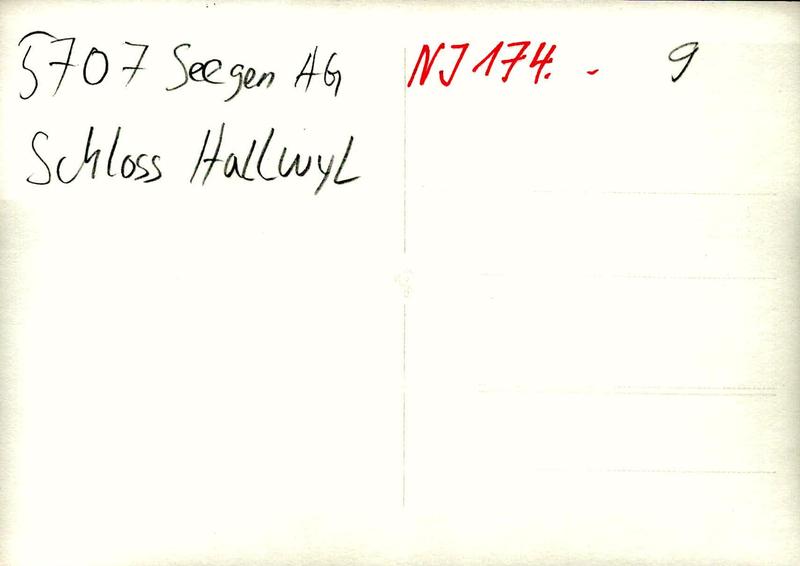 5707 Seegen AG
Schloss Hallwyl
NJ 174. - 9